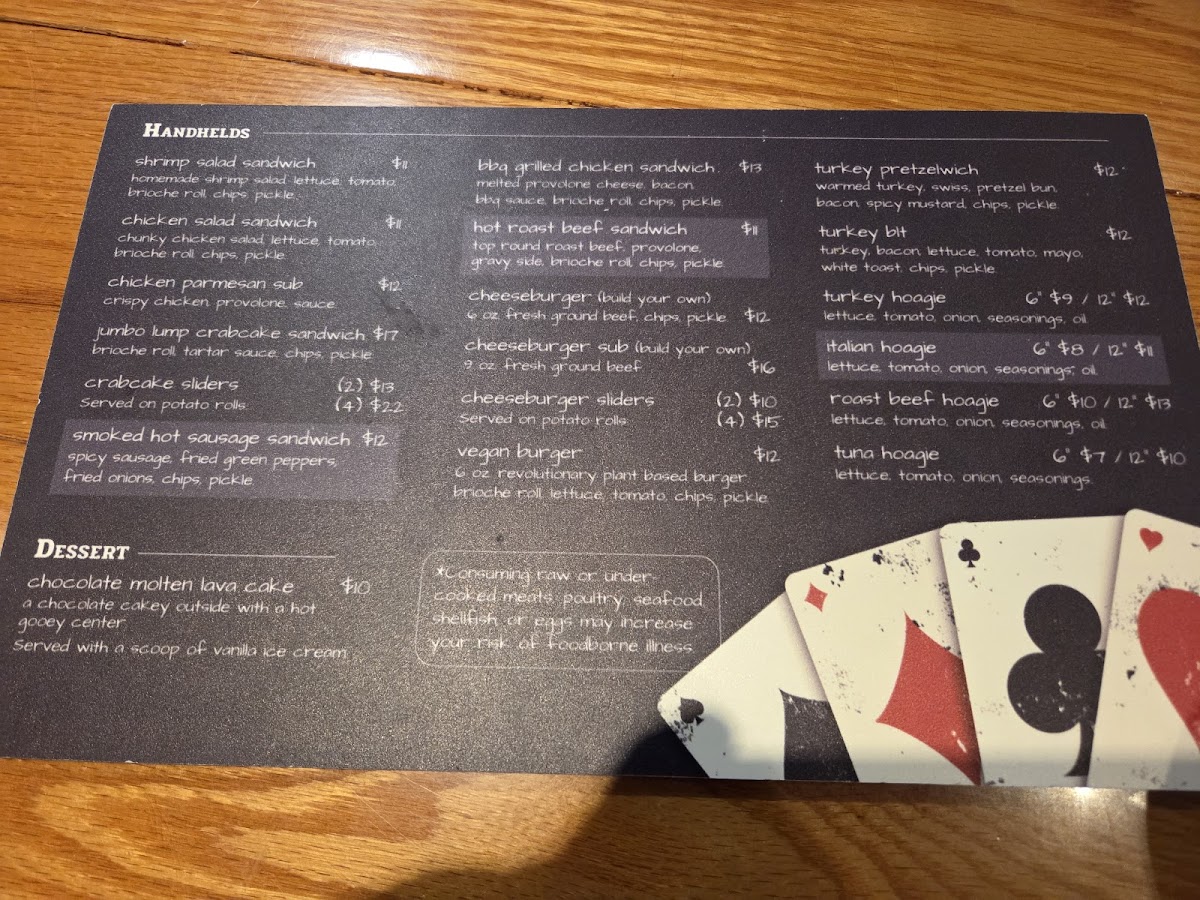 HANDHELDS
shrimp salad sandwich $11
homemade shrimp salad, lettuce, tomato,
brioche roll, chips, pickle
chicken salad sandwich $11
chunky chicken salad, lettuce, tomato,
brioche roll, chips, pickle
chicken parmesan sub $12
crispy chicken, provolone, sauce
jumbo lump crabcake sandwich $17
brioche roll, tartar sauce, chips, pickle
crabcake sliders (2) $13
Served on potato rolls (4) $22
smoked hot sausage sandwich $12
spicy sausage, fried green peppers,
fried onions, chips, pickle
bbq grilled chicken sandwich $13
melted provolone cheese, bacon,
bbq sauce, brioche roll, chips, pickle
hot roast beef sandwich $11
top round roast beef, provolone,
gravy side, brioche roll, chips, pickle
cheeseburger (build your own)
6 oz fresh ground beef, chips, pickle $12
cheeseburger sub (build your own)
9 oz fresh ground beef $16
cheeseburger sliders (2) $10
Served on potato rolls (4) $15
vegan burger $12
6 oz revolutionary plant based burger
brioche roll, lettuce, tomato, chips, pickle
turkey pretzelwich $12
warmed turkey, swiss, pretzel bun,
bacon, spicy mustard, chips, pickle
turkey blt $12
turkey, bacon, lettuce, tomato, mayo,
white toast, chips, pickle
turkey hoagie 6" $9 / 12" $12
lettuce, tomato, onion, seasonings, oil
italian hoagie 6" $8 / 12" $11
lettuce, tomato, onion, seasonings, oil
roast beef hoagie 6" $10 / 12" $13
lettuce, tomato, onion, seasonings, oil
tuna hoagie 6" $7 / 12" $10
lettuce, tomato, onion, seasonings
DESSERT
chocolate molten lava cake $10
a chocolate cakey outside with a hot
gooey center.
Served with a scoop of vanilla ice cream
*Consuming raw or under-
cooked meats, poultry, seafood,
shellfish, or eggs may increase
your risk of foodborne illness